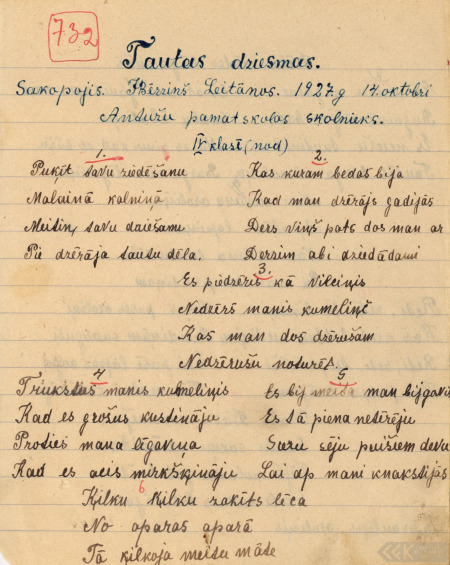 732
Tautas dziesmas.
Sakopojis. Bērziņš Leitānos. 1927.g 14.oktobrī
Andužu pamatskolas skolnieks.
IV klasē (nod)
1.
Puķīt savu ziedēšanu
Malainā kalniņā
Meitiņ, savu daiešanu
Pie dzērāja tautu dēla.
2.
Kas kuram bedas bija
Kad man dzērājs gadijās
Ders viņš pats dos man ar
Derzim abi dziedādami
3.
Es piedzēris kā vilciņis
Nedzērs manis kumeliņš
Kas man dos dzērušam
Nedzērušu noturēt
4
Trūkstas manis kumeliņis
Kad es grošus kustināju
Proties mana līgaviņa
Kad es acis mirkšķināju
5
Es bij meita man bij govis
Es tā piena netērēju
Suru sēju puišiem devu
Lai ap mani knakstijās
6
Ķilku ķilku zakīts lēca
No aparas aparā
Tā ķilkoja meitu māte